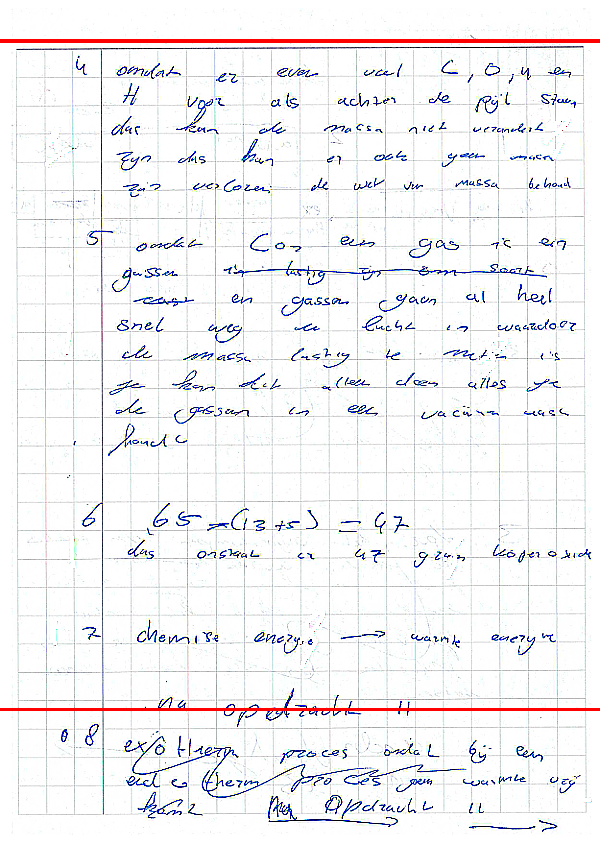 4 omdat er even veel C, O, U en
H voor als achter de pijl staan
dus kan de massa niet verandert
zijn dus kan er ook geen massa
zijn verloren de wet van massa behoud
5 omdat CO2 een gas is en
gassen is lastig zijn zum soort
en gassen gaan al heel
snel weg de lucht in waardoor
de massa lastig te meten is
je kan dit alleen doen alles je
de gassen in een vacuüm
houd
6 65 - (13 + 5) = 47
dus onstaat er 47 gram koperoxide
7 chemise energie → warmte energie
na opdracht 11
8 exotherm proces omdat bij een
endotherm proces geen warmte vrij
komt Na Opdracht 11